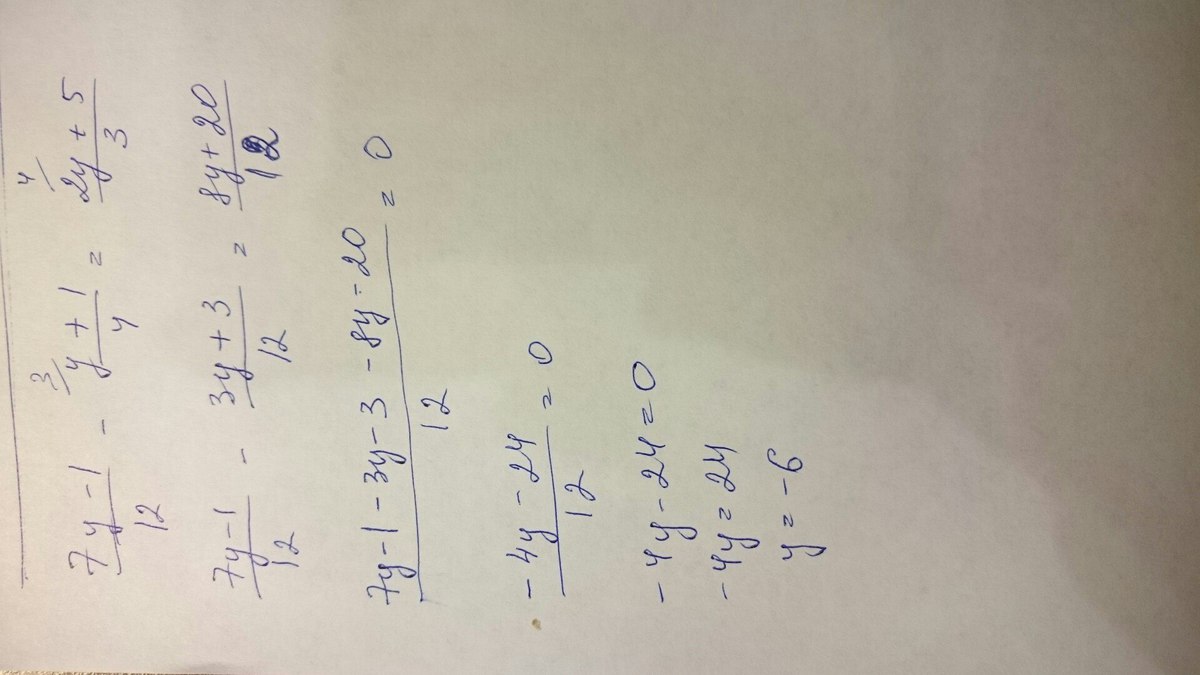 3/ 4/
(7y-1)/12 - (y+1)/4 = (2y+5)/3
(7y-1)/12 - (3y+3)/12 = (8y+20)/12
(7y-1-3y-3-8y-20)/12 = 0
(-4y-24)/12 = 0
-4y-24=0
-4y=24
y=-6